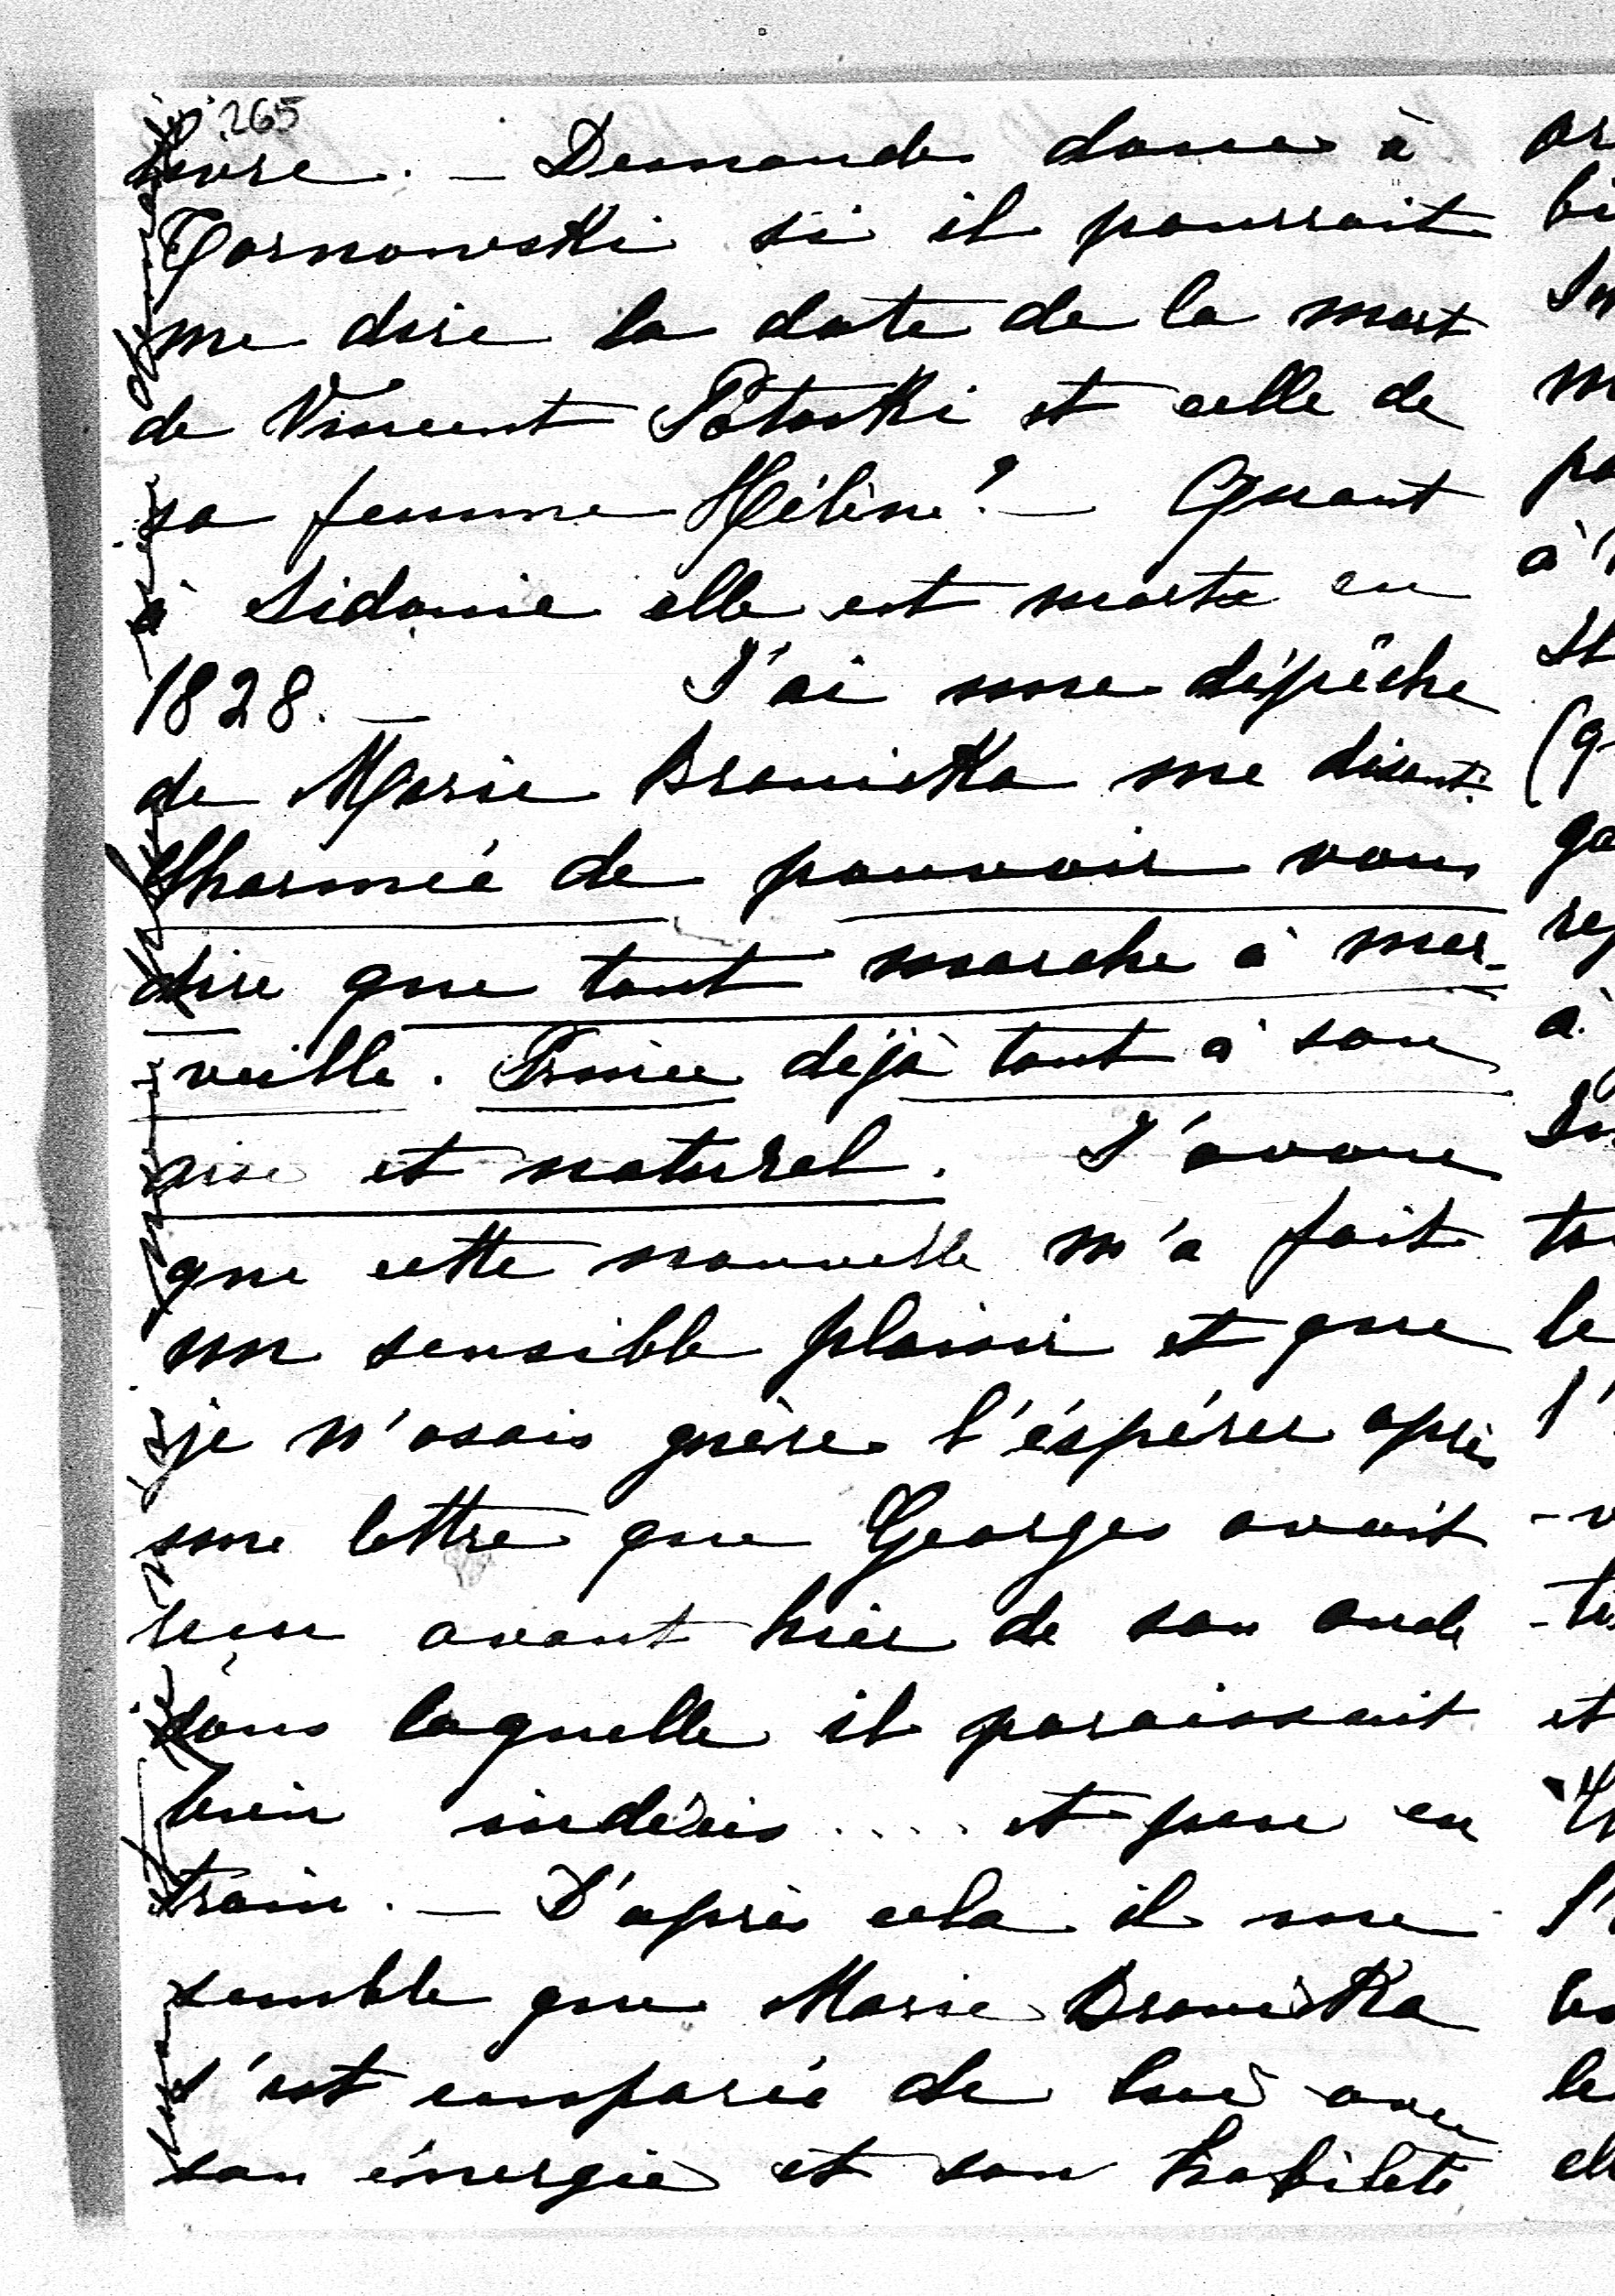 265
livre. — Demande donc à
Tarnowski si il pourrait
me dire la date de la mort
de Vincent Potocki et celle de
sa femme Hélène? — Quant
à Sidonie elle est morte en
1828. — J'ai une dépêche
de Marie Branicka me disant:
Charmée de pouvoir vous
dire que tout marche à mer-
veille. Prince déjà tout à son
aise et naturel. J'avoue
que cette nouvelle m'a fait
un sensible plaisir et que
je n'osais guère l'éspérer après
une lettre que Georges avait
reçu avant hier de son oncle
dans laquelle il paraissait
bien indécis .... et peu en
train. — D'après cela il me
semble que Marie Branicka
s'est emparée de lui avec
son énergie et son habileté